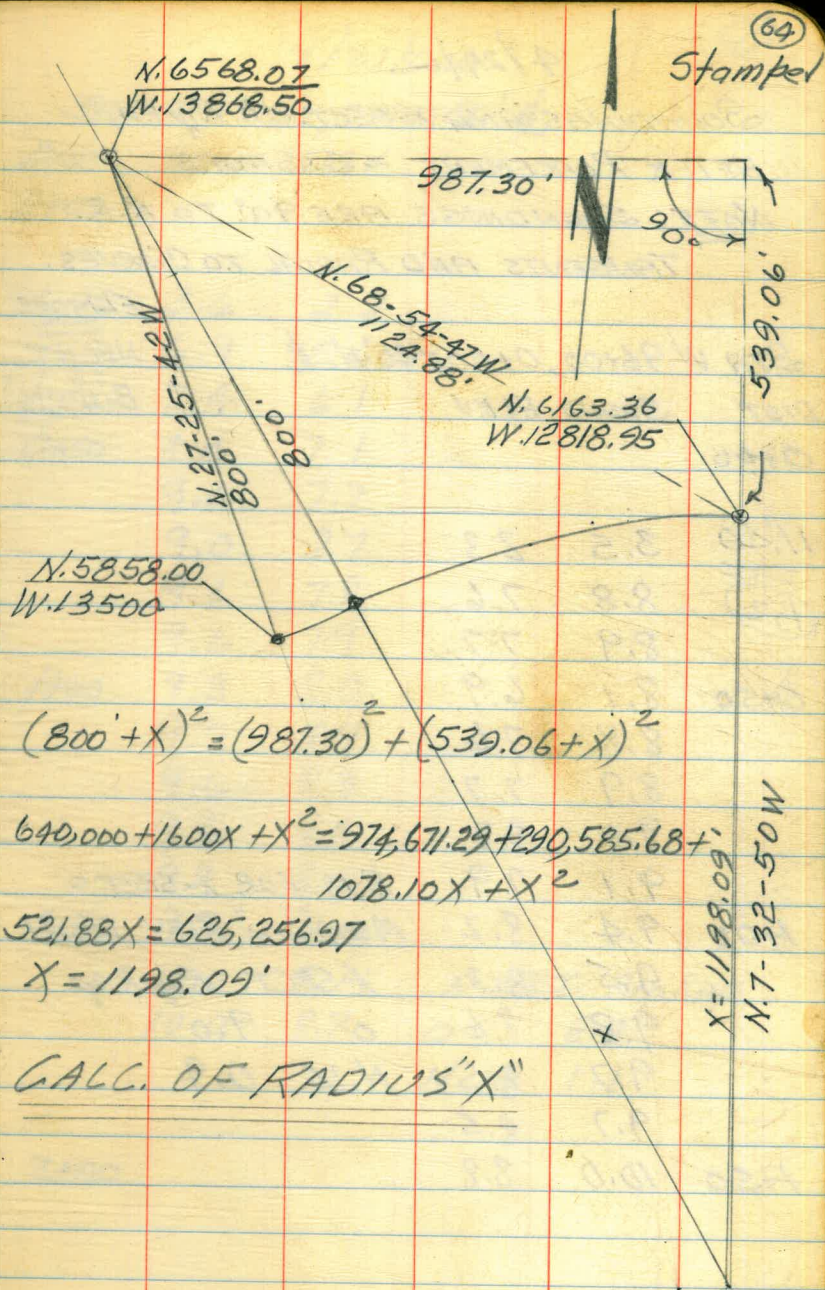 64
Stamper
N.6568.07
W.13868.50
987.30'
N
90°
539.06'
N.68-54-47W
1124.88'
N.27-25-42W
800'
800'
N.6163.36
W.12818.95
N.5858.00
W.13500
(800'+X)²=(987.30)²+(539.06+X)²
640,000+1600X+X²=974,671.29+290,585.68+
1078.10X+X²
521.88X=625,256.97
X=1198.09'
X=1198.09'
N.7-32-50W
X
CALC. OF RADIUS "X"